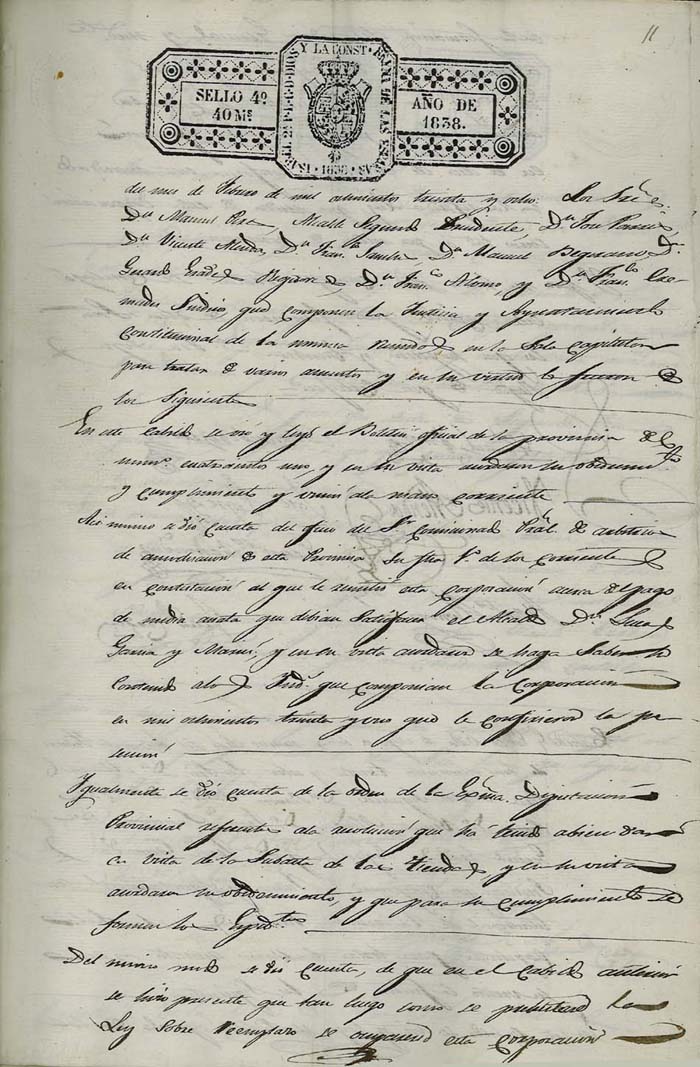 11
ISABEL 2ª P.L.G.D. DIOS Y LA CONST. REYNA DE LAS ESPAÑAS
SELLO 4º
40 Mˢ
AÑO DE
1838.
1838
del mes de Enero de mil ochocientos treinta y ocho: Los Sres.
Dn. Manuel Alcalde Segundo Presidente, Dn. Jose
Dn. Vicente Dn. Franco. Dn. Manuel Dn.
Regidores, Dn. Franco. Alonso, y Dn. Franco.
Sindicos que componen la Justicia y Ayuntamiento
Constitucional de la misma reunidos en la Sala Capitular
para tratar de varios asuntos y en su virtud lo fueron de
los siguientes
En este Cabildo se vio y leyó el Boletin oficial de la provincia
numo. cuatrocientos uno, y en su vista acordaron su obedecimto.
y cumplimiento y unirse de mano corriente
Asi mismo se dió cuenta del oficio del Sr. Comisionado Pral. de arbitrios
de amortizacion de esta Provincia su fha. 1º de los corrientes
en contestacion al que le remitió esta corporacion acerca del pago
de media anata que debian Satisfacer el Alcalde Dn.
Garcia y y en su vista acordaron se haga Saber su
Contenido a los Ynds. que componian la Corporacion
en mil ochocientos treinta y que le confirieron la pe-
nsion
Ygualmente se dió cuenta de la orden de la Exma. Diputacion
Provincial referente a la resolucion que há tenido a bien dar
en vista de la Subasta de las Tiendas, y en su vista
acordaron su obedecimiento, y que para su cumplimiento se
formen los Espedtes.
Del mismo modo se dió cuenta, de que en el Cabildo anterior
se hizo presente que tan luego como se publicase la
Ley Sobre reemplazo se ocupase esta Corporacion